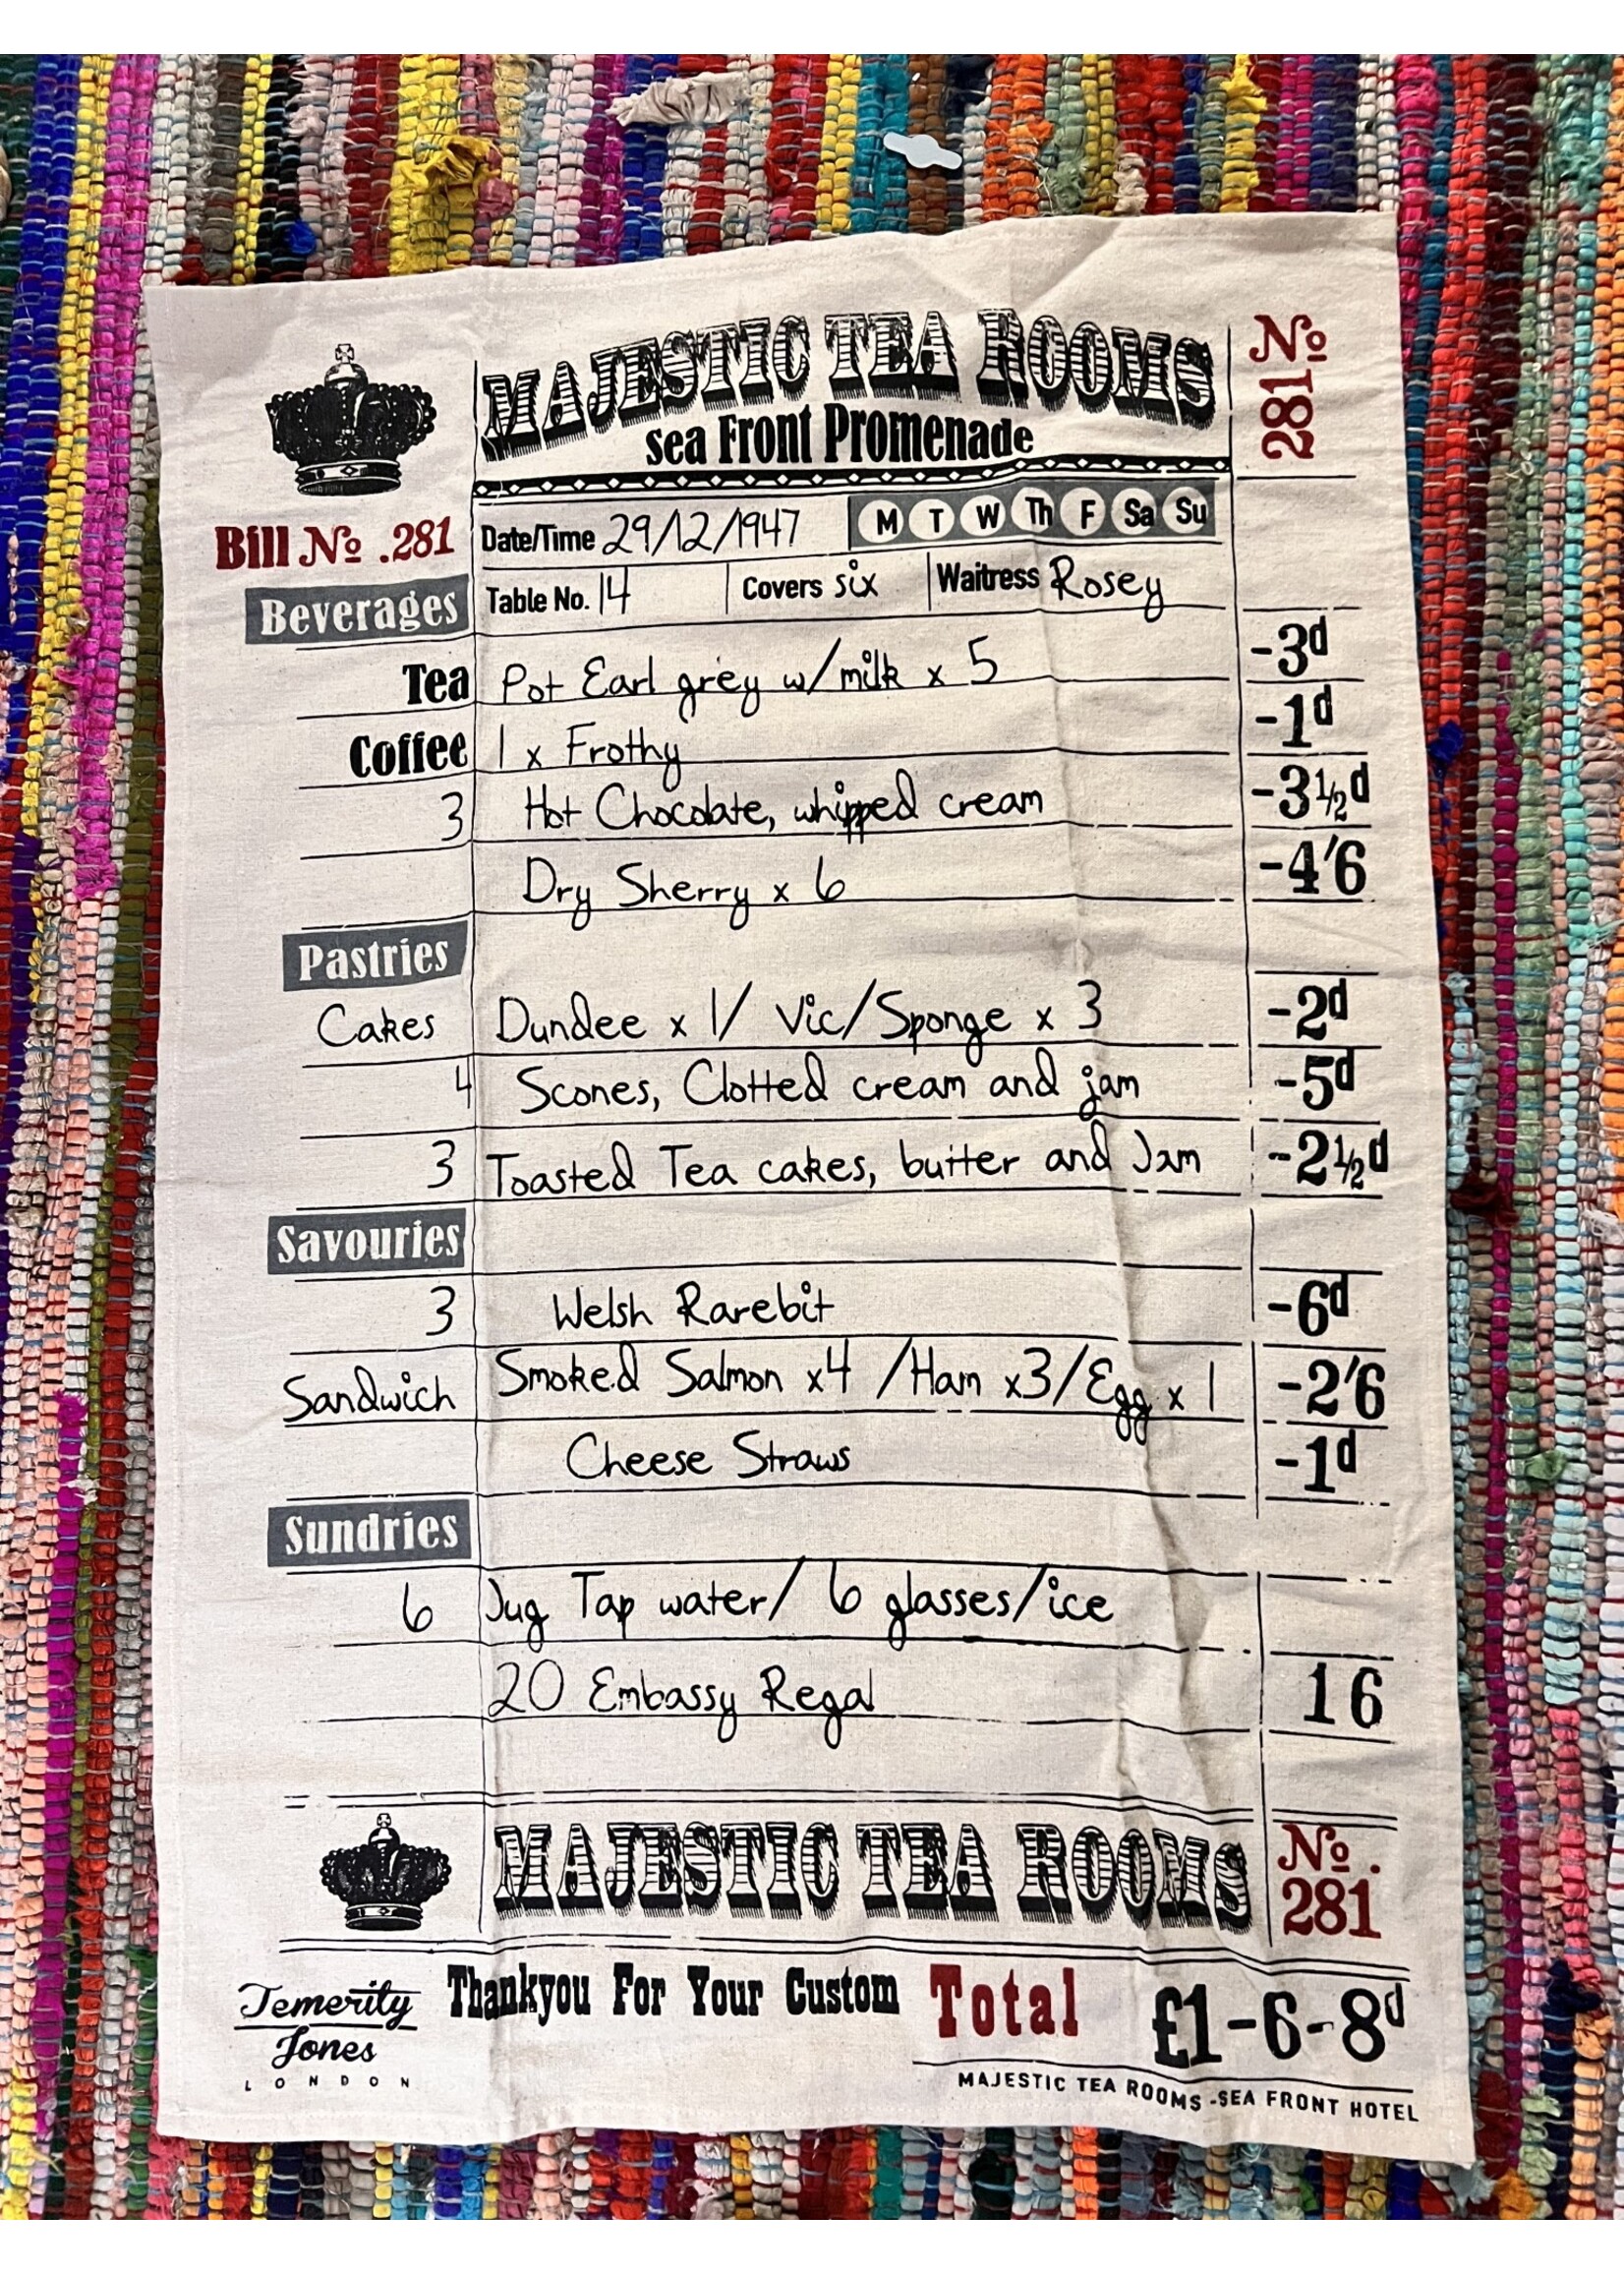 MAJESTIC TEA ROOMS
Sea Front Promenade
281 No
Bill No .281
Date/Time 29/12/1947 M T W Th F Sa Su
Table No. 14 Covers six Waitress Rosey
Beverages
Tea Pot Earl grey w/milk x 5 -3d
Coffee 1 x Frothy -1d
3 Hot Chocolate, whipped cream -3½d
Dry Sherry x 6 -4'6
Pastries
Cakes Dundee x 1/ Vic/Sponge x 3 -2d
4 Scones, Clotted cream and jam -5d
3 Toasted Tea cakes, butter and Jam -2½d
Savouries
3 Welsh Rarebit -6d
Sandwich Smoked Salmon x4 /Ham x3/Egg x 1 -2'6
Cheese Straws -1d
Sundries
6 Jug Tap water/ 6 glasses/ice
20 Embassy Regal 16
MAJESTIC TEA ROOMS No. 281
Thankyou For Your Custom Total £1-6-8d
Temerity Jones
LONDON
MAJESTIC TEA ROOMS -SEA FRONT HOTEL